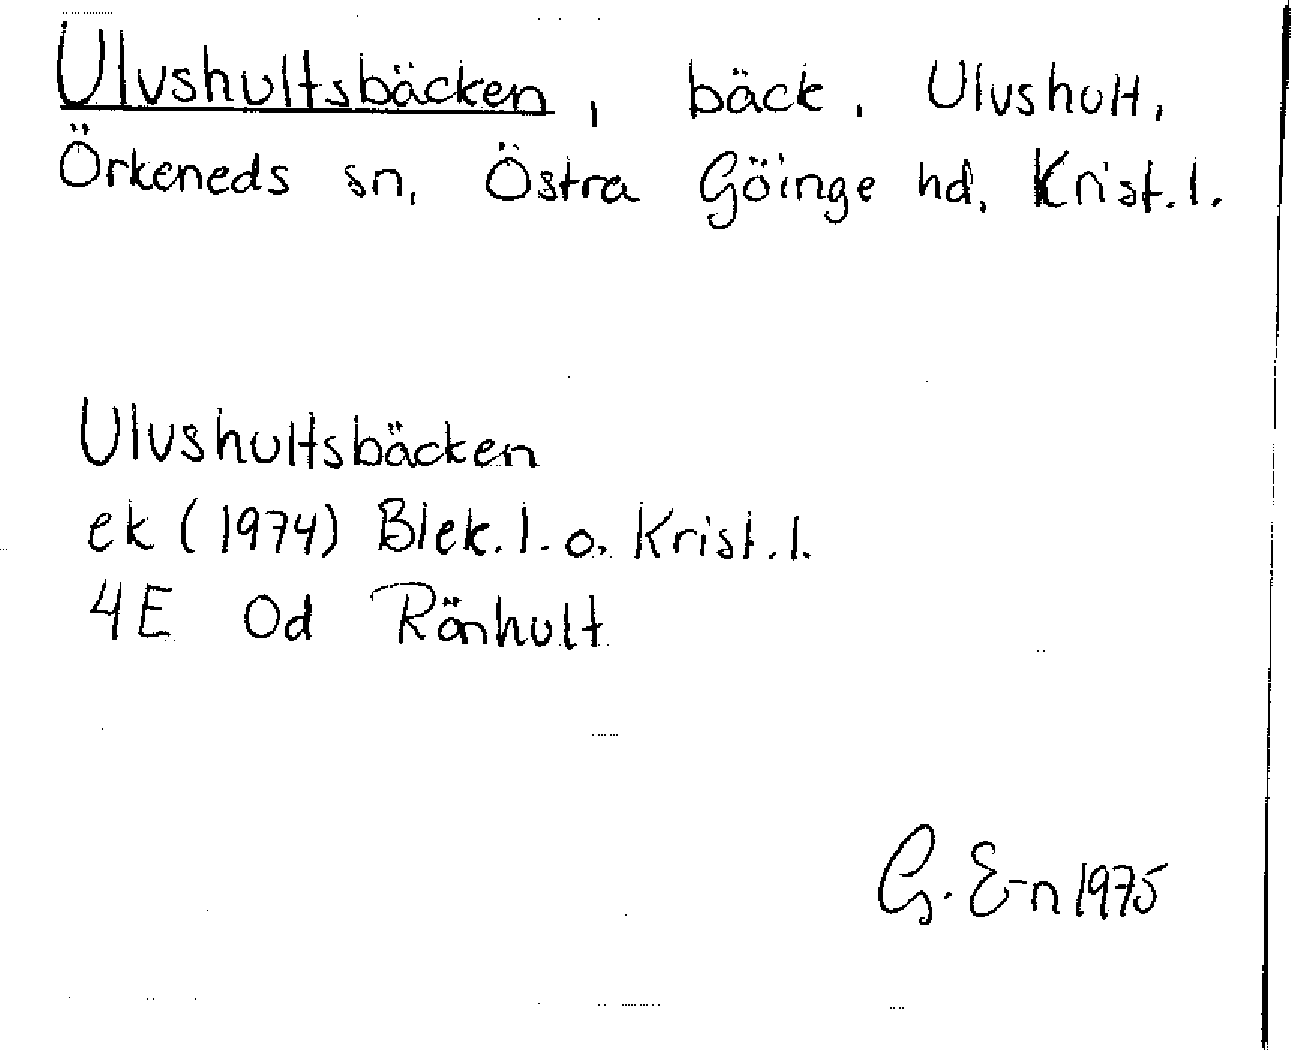 Ulvshultsbäcken, bäck, Ulvshult,
Örkeneds sn, Östra Göinge hd, Krist.l.
Ulvshultsbäcken
ek (1974) Blek.l. o. Krist.l.
4E 0d Rönhult
G. E-n 1975